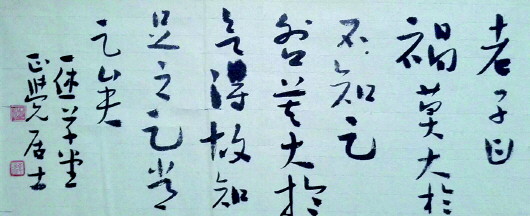 老子曰
禍莫大於
不知足
咎莫大於
欲得故知
足之足常
足矣
一休草堂
正覺居士